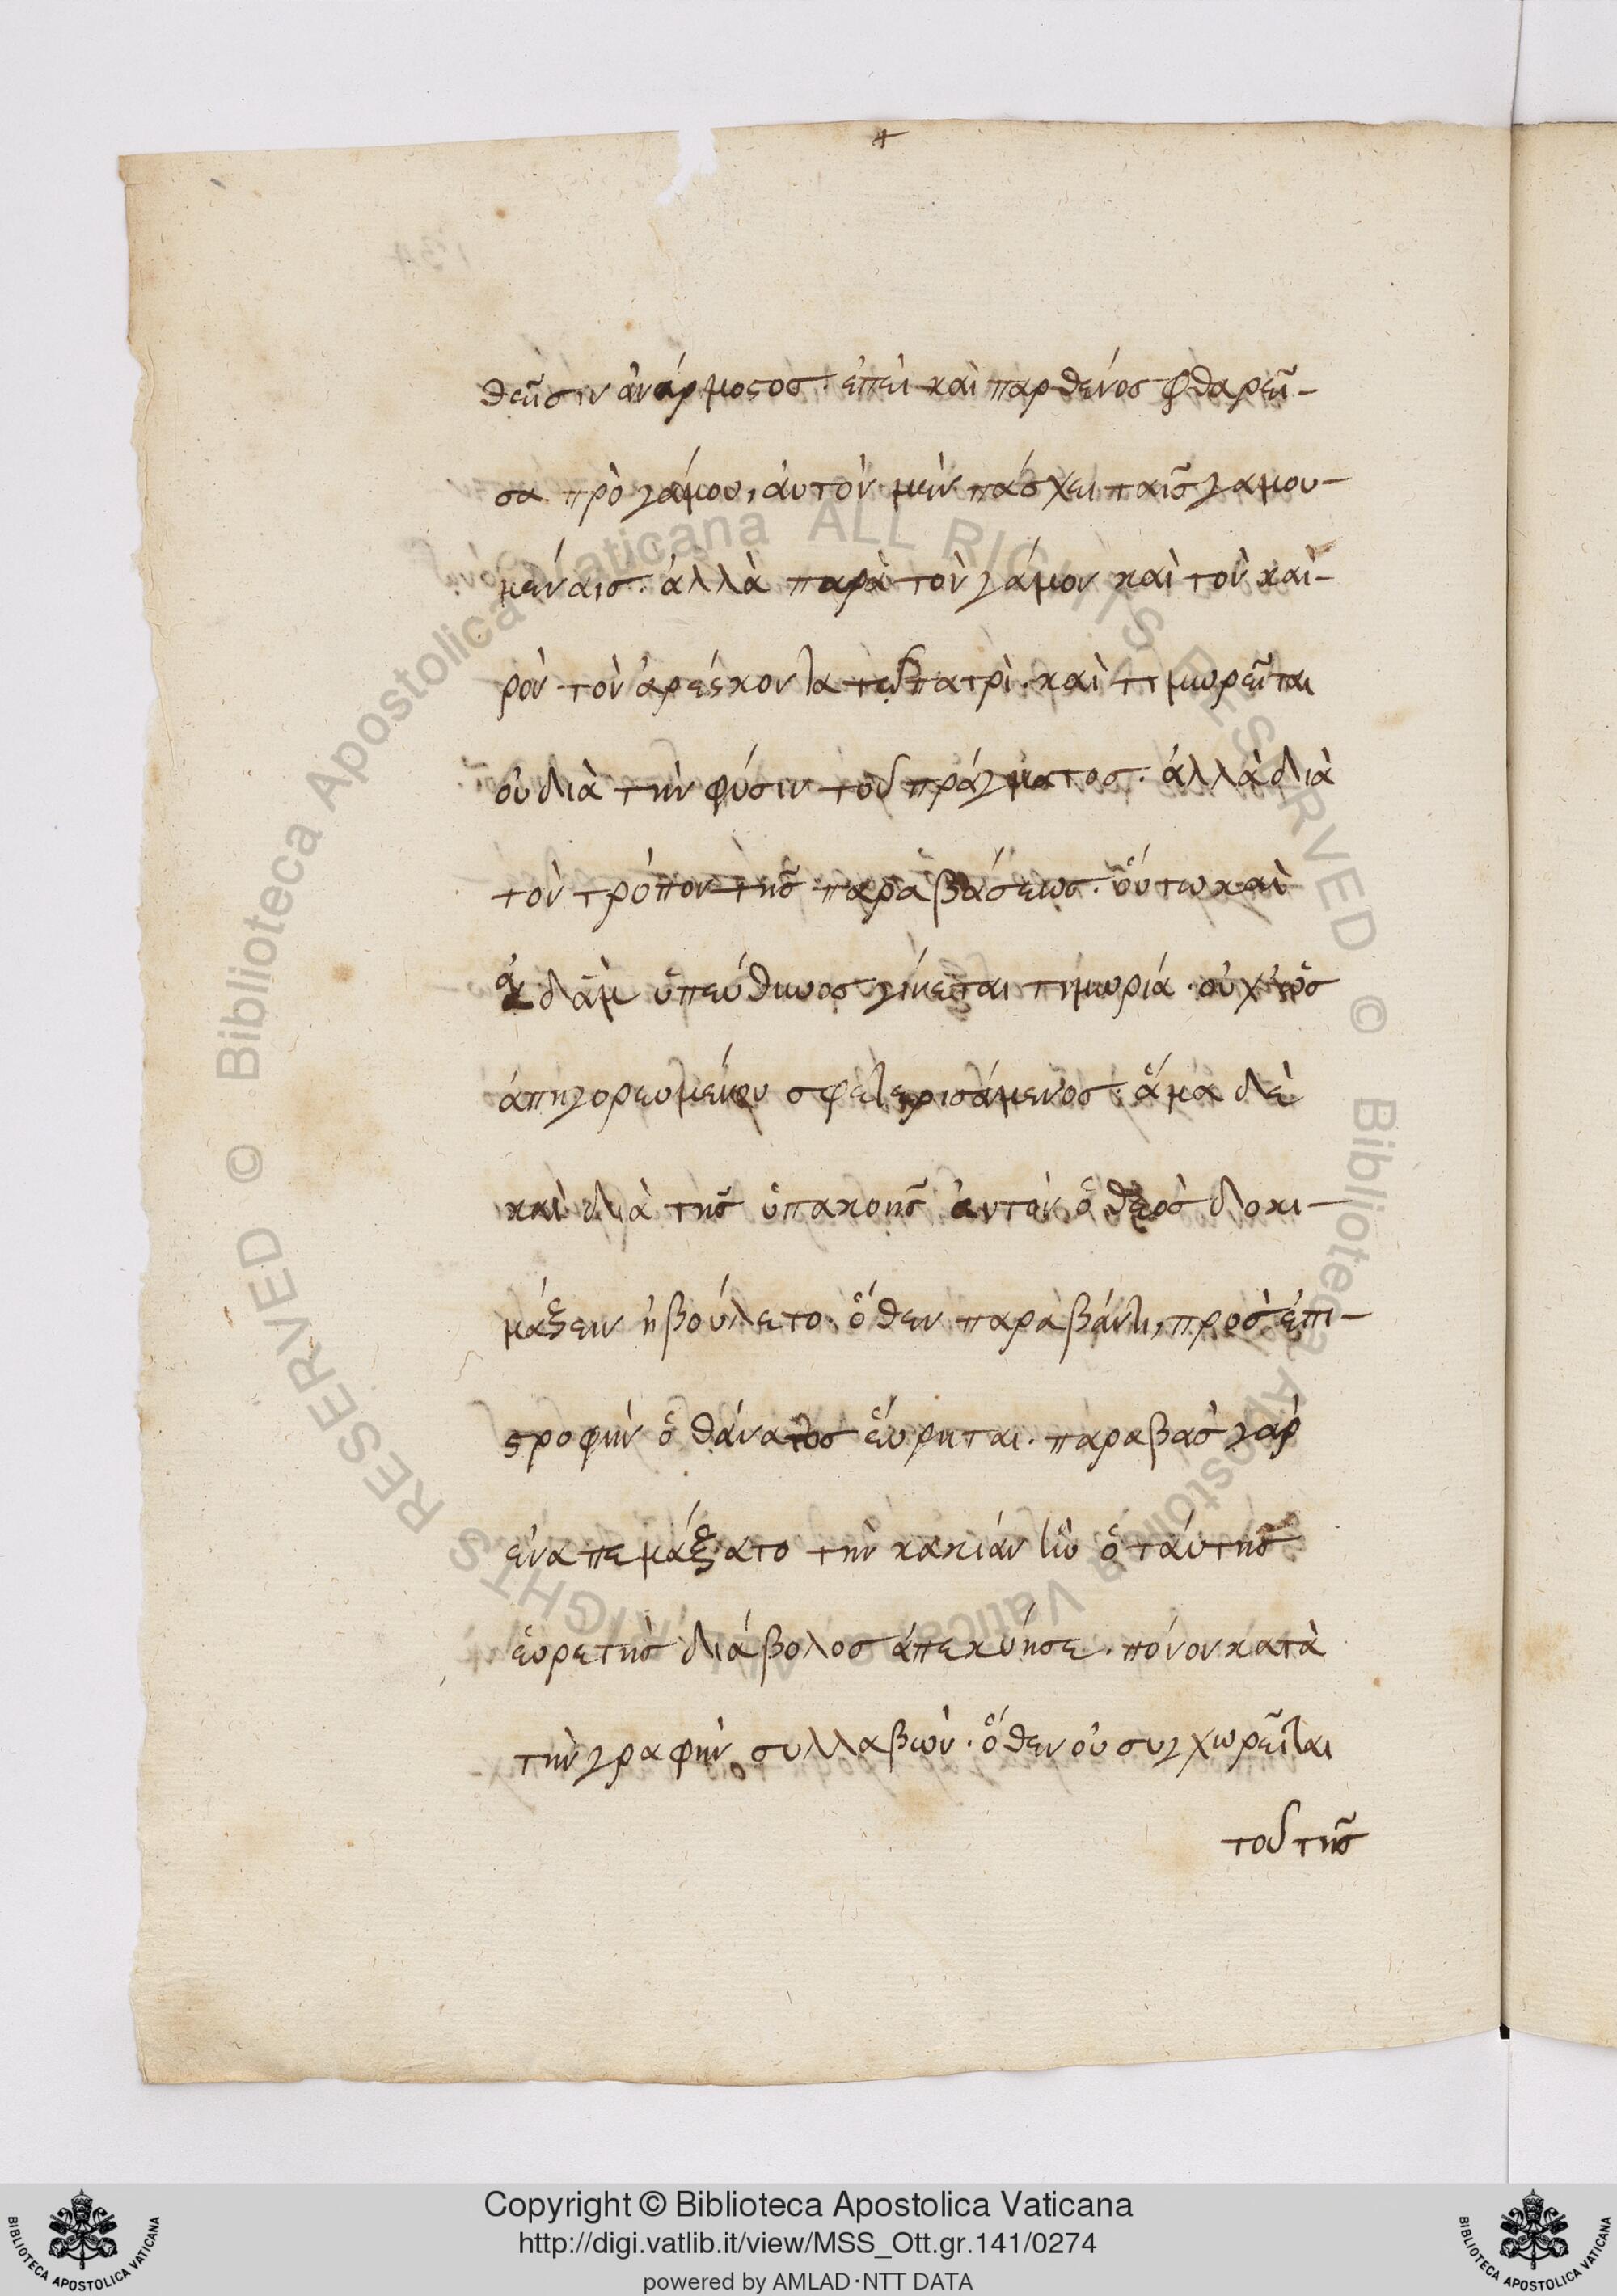 θεῖσιν ἀνάρμοστος. ἐπεὶ καὶ παρθένος φθαρεῖ-
σα πρὸ γάμου, ἀυτὸν μὲν πάσχει ταῖς γαμου-
μέναις. ἀλλὰ παρὰ τὸν γάμον καὶ τὸν και-
ρὸν τὸν ἀρέσκοντα τῷ πατρὶ. καὶ τιμωρεῖται
οὐ διὰ τὴν φύσιν τοῦ πράγματος. ἀλλὰ διὰ
τὸν τρόπον τῆς παραβάσεως. ὅυτω καὶ
ἀδὰμ ὑπεύθυνος γίνεται τιμωρία. οὐχ ὡς
ἀπηγορευμένου σφετερισάμενος. ἅμα δὲ
καὶ διὰ τῆς ὑπακοῆς ἀυτὸν ὁ θεὸς δοκι-
μάζειν ἠβούλετο. ὅθεν παραβάντι, πρὸς ἐπι-
στροφὴν ὁ θάνατος ἕυρηται. παραβὰς γὰρ
ἐναπεμάξατο τὴν κακίαν ἣν ὁ τάυτης
ἑυρετὴς διάβολος ἀπεκύησε. πόνον κατὰ
τὴν γραφὴν συλλαβὼν. ὅθεν οὐ συγχωρεῖται
τοῦ τῆς
Copyright © Biblioteca Apostolica Vaticana
http://digi.vatlib.it/view/MSS_Ott.gr.141/0274
powered by AMLAD·NTT DATA
BIBLIOTECA APOSTOLICA VATICANA
BIBLIOTECA APOSTOLICA VATICANA
© Biblioteca Apostolica Vaticana ALL RIGHTS RESERVED © Biblioteca Apostolica Vaticana ALL RIGHTS RESERVED